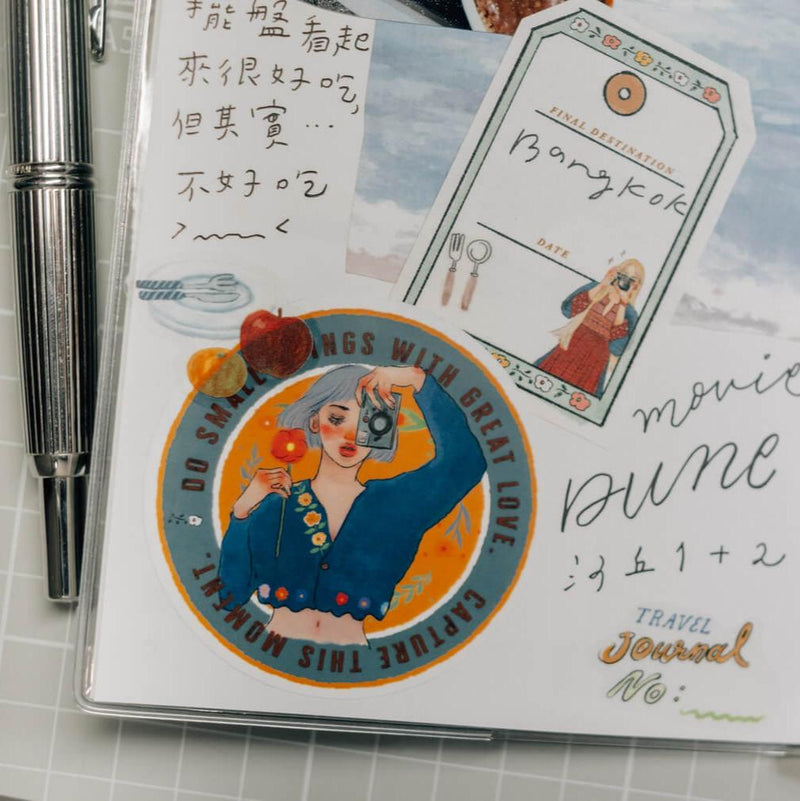 擺盤看起
來很好吃,
但其實…
不好吃
FINAL DESTINATION
Bangkok
DATE
DO SMALL THINGS WITH GREAT LOVE.
CAPTURE THIS MOMENT.
movie
DUNE
沙丘1+2
TRAVEL
Journal
No: